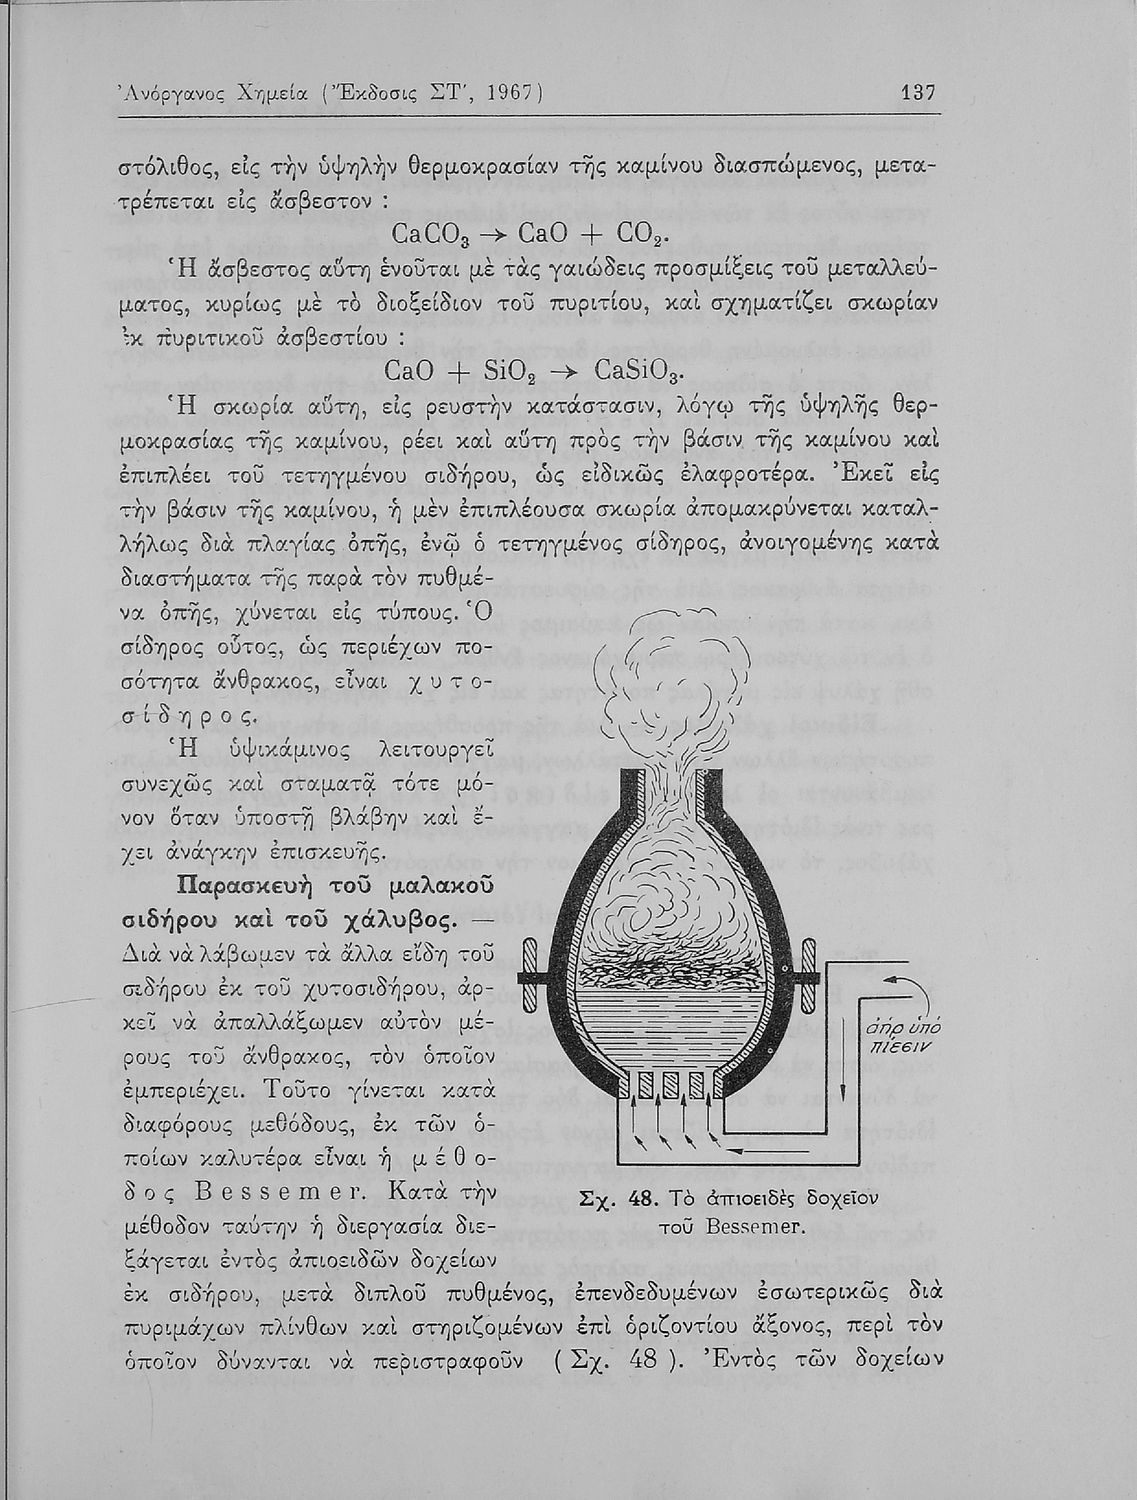 Ἀνόργανος Χημεία (Ἔκδοσις ΣΤ', 1967)
137
στόλιθος, εἰς τὴν ὑψηλὴν θερμοκρασίαν τῆς καμίνου διασπώμενος, μετα-
τρέπεται εἰς ἄσβεστον :
CaCO₃ → CaO + CO₂.
Ἡ ἄσβεστος αὕτη ἑνοῦται μὲ τὰς γαιώδεις προσμίξεις τοῦ μεταλλεύ-
ματος, κυρίως μὲ τὸ διοξείδιον τοῦ πυριτίου, καὶ σχηματίζει σκωρίαν
ἐκ πυριτικοῦ ἀσβεστίου :
CaO + SiO₂ → CaSiO₃.
Ἡ σκωρία αὕτη, εἰς ρευστὴν κατάστασιν, λόγῳ τῆς ὑψηλῆς θερ-
μοκρασίας τῆς καμίνου, ρέει καὶ αὕτη πρὸς τὴν βάσιν τῆς καμίνου καὶ
ἐπιπλέει τοῦ τετηγμένου σιδήρου, ὡς εἰδικῶς ἐλαφροτέρα. Ἐκεῖ εἰς
τὴν βάσιν τῆς καμίνου, ἡ μὲν ἐπιπλέουσα σκωρία ἀπομακρύνεται καταλ-
λήλως διὰ πλαγίας ὀπῆς, ἐνῷ ὁ τετηγμένος σίδηρος, ἀνοιγομένης κατὰ
διαστήματα τῆς παρὰ τὸν πυθμέ-
να ὀπῆς, χύνεται εἰς τύπους. Ὁ
σίδηρος οὗτος, ὡς περιέχων πο-
σότητα ἄνθρακος, εἶναι χ υ τ ο-
σ ί δ η ρ ο ς.
Ἡ ὑψικάμινος λειτουργεῖ
συνεχῶς καὶ σταματᾷ τότε μό-
νον ὅταν ὑποστῇ βλάβην καὶ ἔ-
χει ἀνάγκην ἐπισκευῆς.
Παρασκευὴ τοῦ μαλακοῦ
σιδήρου καὶ τοῦ χάλυβος. —
Διὰ νὰ λάβωμεν τὰ ἄλλα εἴδη τοῦ
σιδήρου ἐκ τοῦ χυτοσιδήρου, ἀρ-
κεῖ νὰ ἀπαλλάξωμεν αὐτὸν μέ-
ρους τοῦ ἄνθρακος, τὸν ὁποῖον
ἐμπεριέχει. Τοῦτο γίνεται κατὰ
διαφόρους μεθόδους, ἐκ τῶν ὁ-
ποίων καλυτέρα εἶναι ἡ μ έ θ ο-
δ ο ς B e s s e m e r. Κατὰ τὴν
μέθοδον ταύτην ἡ διεργασία διε-
ξάγεται ἐντὸς ἀπιοειδῶν δοχείων
ἐκ σιδήρου, μετὰ διπλοῦ πυθμένος, ἐπενδεδυμένων ἐσωτερικῶς διὰ
πυριμάχων πλίνθων καὶ στηριζομένων ἐπὶ ὁριζοντίου ἄξονος, περὶ τὸν
ὁποῖον δύνανται νὰ περιστραφοῦν ( Σχ. 48 ). Ἐντὸς τῶν δοχείων
ἀὴρ ὑπὸ
πίεσιν
Σχ. 48. Τὸ ἀπιοειδὲς δοχεῖον
τοῦ Bessemer.